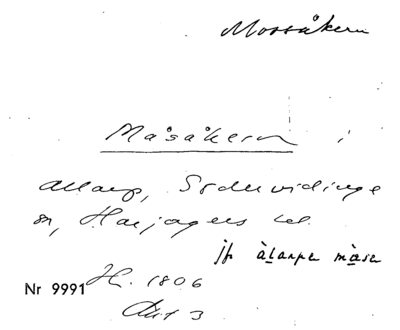 Mossåkern
Måsåkern i
Allarp, Södervidinge
sn, Harjagers hd.
jfr àlarpa màsa
Nr 9991 H. 1806
Akt 3